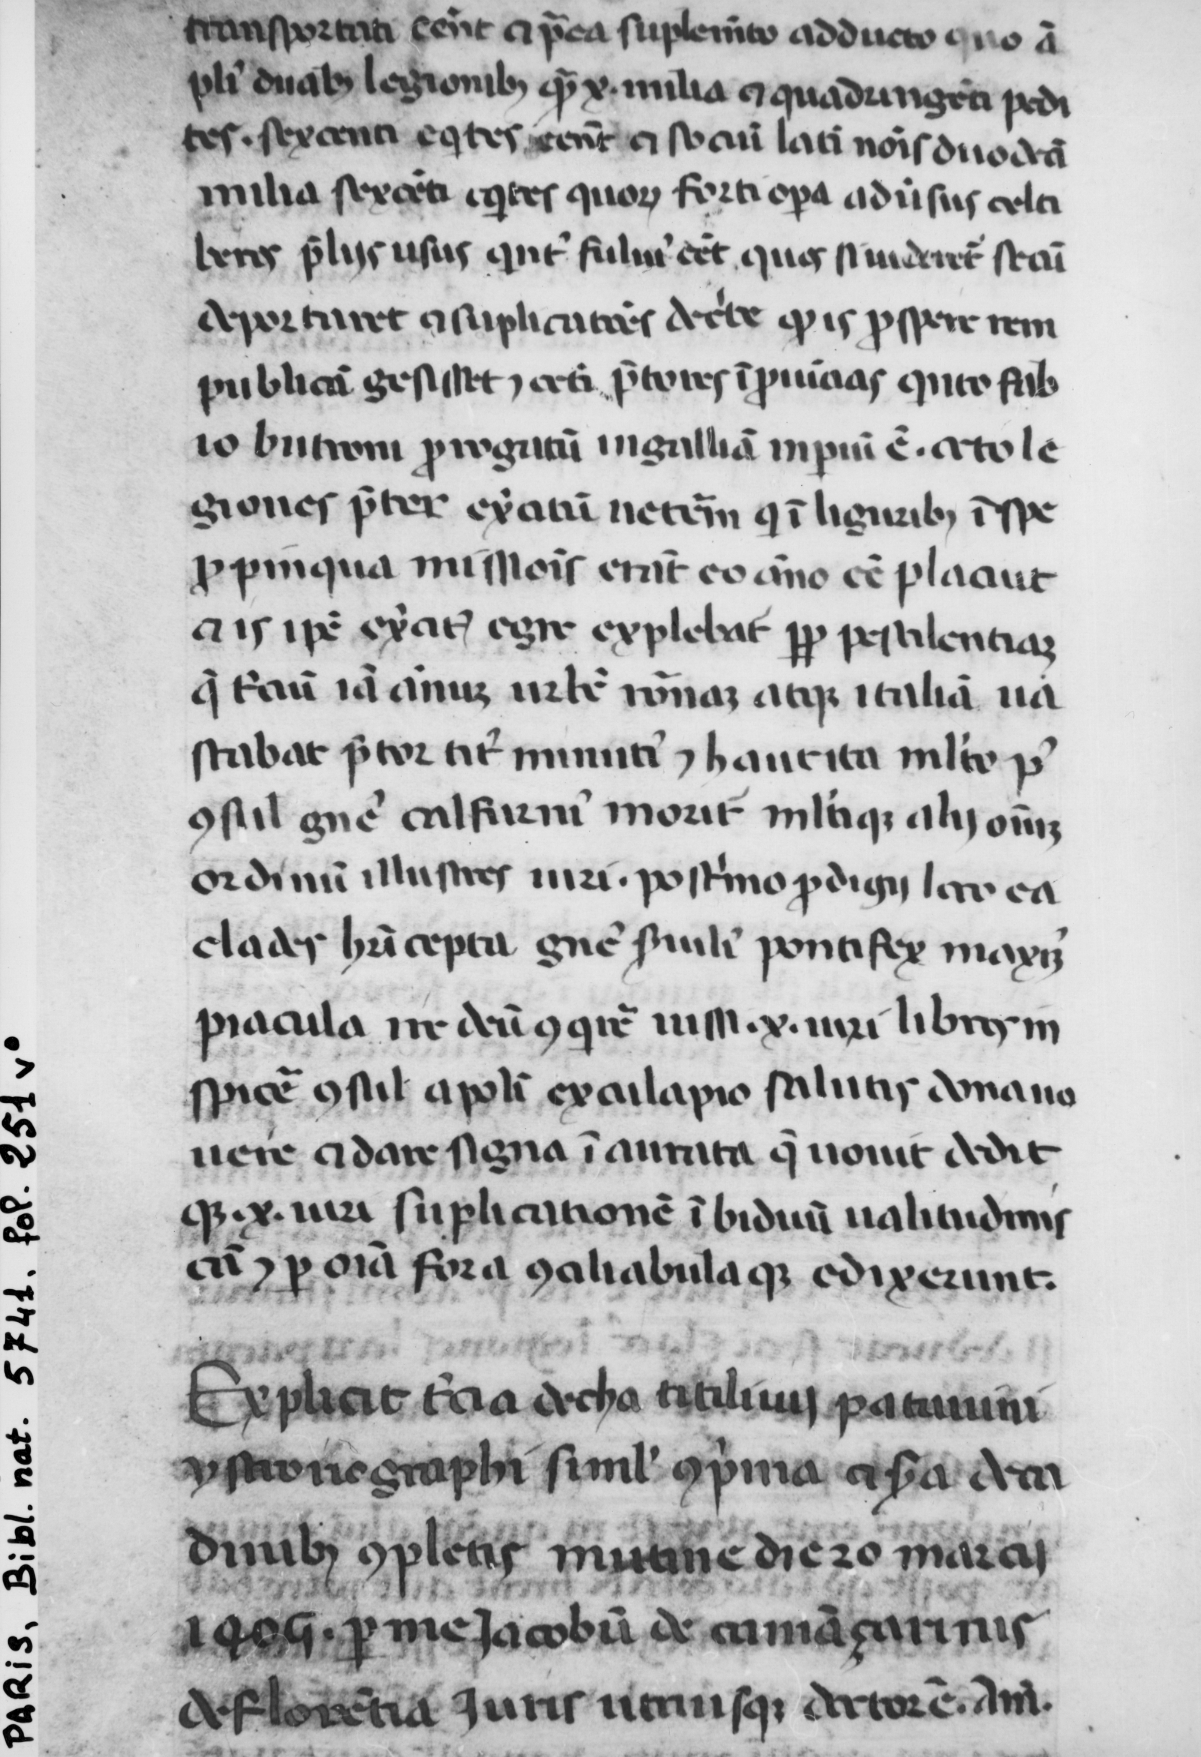 transportati eēnt ⁊ p̄ea suplem̄to adducto quo ā
pli⁹ duab; legionib; qȝ x. milia ⁊ quadringēti pedi
tes. sexcenti eqtes eēnt ⁊ sociū lati nōis duodeci
milia sexcēti eqtes quoꝝ forti opa adūsus celti
beros p̄lijs usus qnt⁹ fului⁹ eēt quos si uideret̄ secū
deportaret ⁊ suplicatōes dec̄te qȝ is ꝓspere rem
publicā gesisset ⁊ ceti p̄tores ī ꝓuīcias qnto fab
io buteoni ꝓrogatū in galliā inpiū ē. octo le
giones p̄ter ex̄citū uetem̄ q ī ligurib; ī spe
ꝓpinqua missiōis erāt eo āno eē placuit
⁊ is ip̄e ex̄cit⁹ egre explebat̄ ꝓp pestilentiaꝫ
q̄ t̄ciū iā ānuꝫ urbē rōmaꝫ atqꝫ italiā ua
stabat p̄tor tit⁹ minuti⁹ ⁊ haut ita ml̄to p⁹
ꝯsul gne⁹ calfurni⁹ morit̄ ml̄tiqꝫ alij oīuꝫ
ordinū illustres uiri. post̄mo ꝓdigij loco ea
clades hr̄i cepta gne⁹ s̄uili⁹ pontifex maxiꝫ⁹
piacula ire deū ꝯqire iussi. x. uiri libros in
spicē ꝯsul apoli exculapio salutis dona uo
uere ⁊ dare signa ī aurata q̄ uouit dedit
qꝫ. x. uiri suplicationē ī biduū ualitudinis
cā ⁊ ꝑ oīa fora ꝯciliabulaqꝫ edixerunt.
Explicit t̄cia decha titiliuij patauini
ystoriographi simil⁹ ꝯ p̄ma ⁊ s̄a deca
dinib; ꝯpletis mutine die 20 marcij
1405. ꝑ me Jacobū de camāçarinis
de florētia Juris utriusqꝫ doctorē. Am̄.
PARIS, Bibl. nat. 5741. fol. 251 v°